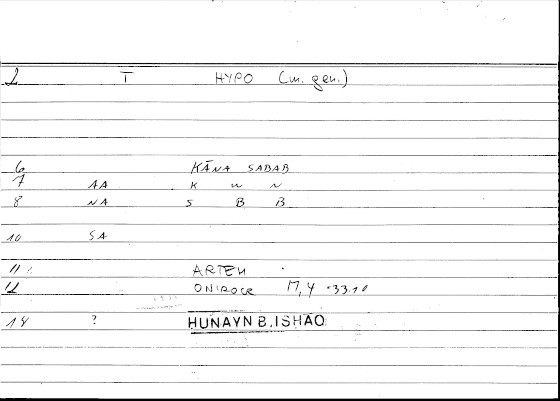 1 T HYPO (m. gen.)
6 KĀNA SABAB
7 AA K W N
8 NA S B B
10 SA
11 ARTEM
12 ONIROCR 33.10
14 ? HUNAYN B. ISHAQ